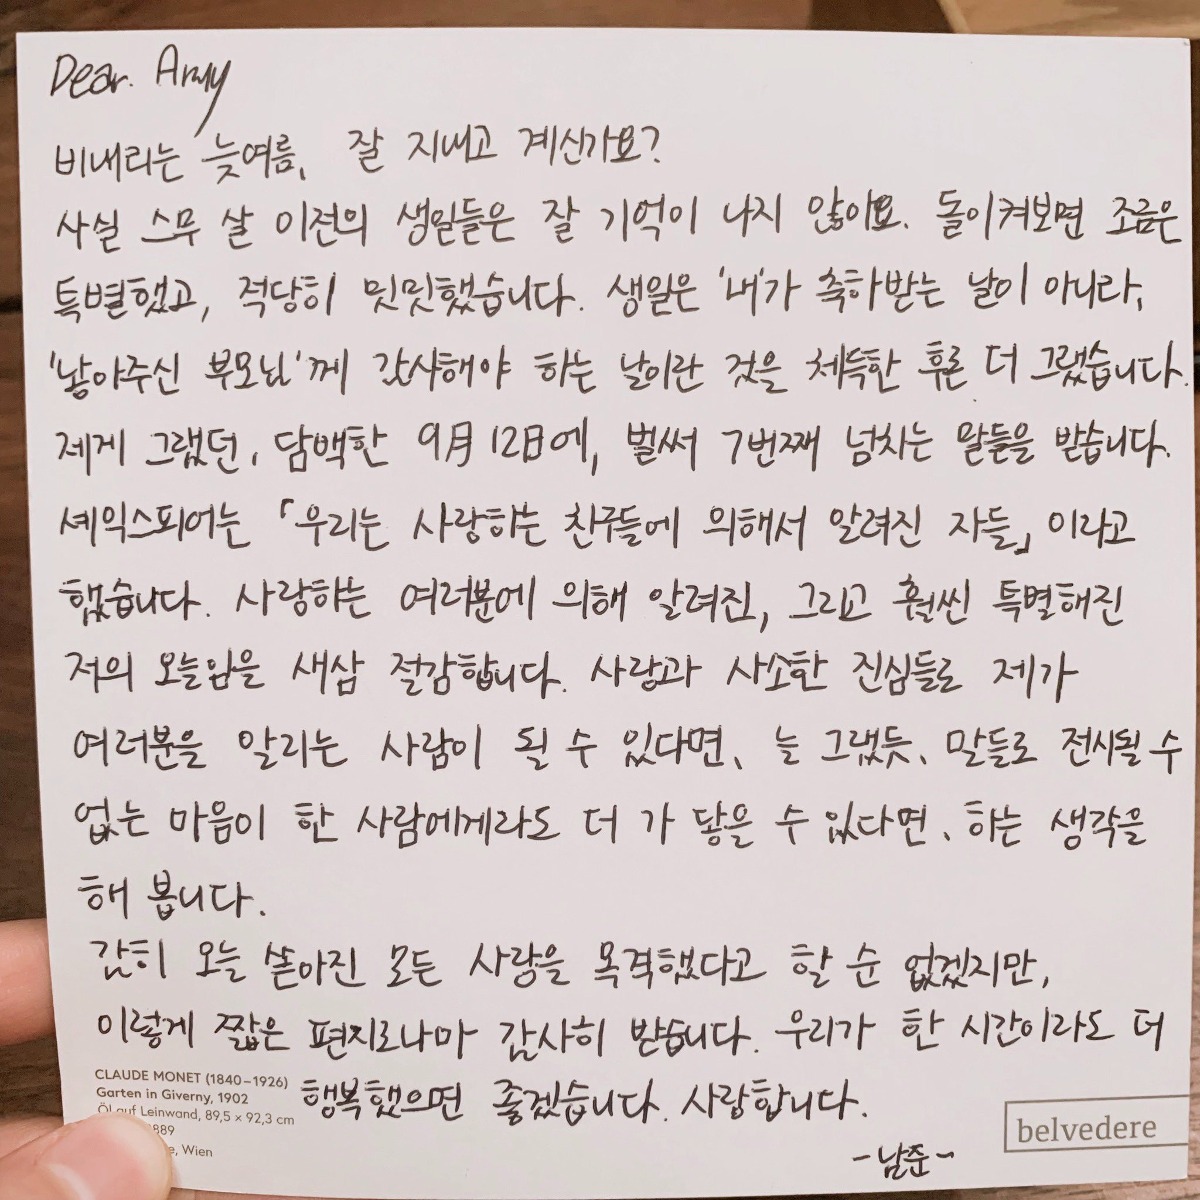 Dear. Army
비내리는 늦여름, 잘 지내고 계신가요?
사실 스무 살 이전의 생일들은 잘 기억이 나지 않아요. 돌이켜보면 조금은
특별했고, 적당히 밋밋했습니다. 생일은 '내'가 축하받는 날이 아니라,
'낳아주신 부모님'께 감사해야 하는 날이란 것을 체득한 후론 더 그랬습니다.
제게 그랬던, 담백한 9月 12日에, 벌써 7번째 넘치는 말들을 받습니다.
셰익스피어는 「우리는 사랑하는 친구들에 의해서 알려진 자들」이라고
했습니다. 사랑하는 여러분에 의해 알려진, 그리고 훨씬 특별해진
저의 오늘임을 새삼 절감합니다. 사랑과 사소한 진심들로 제가
여러분을 알리는 사람이 될 수 있다면, 늘 그랬듯, 말들로 전시될 수
없는 마음이 한 사람에게라도 더 가 닿을 수 있다면, 하는 생각을
해 봅니다.
감히 오늘 쏟아진 모든 사랑을 목격했다고 할 순 없겠지만,
이렇게 짧은 편지로나마 감사히 받습니다. 우리가 한 시간이라도 더
행복했으면 좋겠습니다. 사랑합니다.
-남준-
CLAUDE MONET (1840–1926)
Garten in Giverny, 1902
Öl auf Leinwand, 89,5 × 92,3 cm
889
, Wien
belvedere